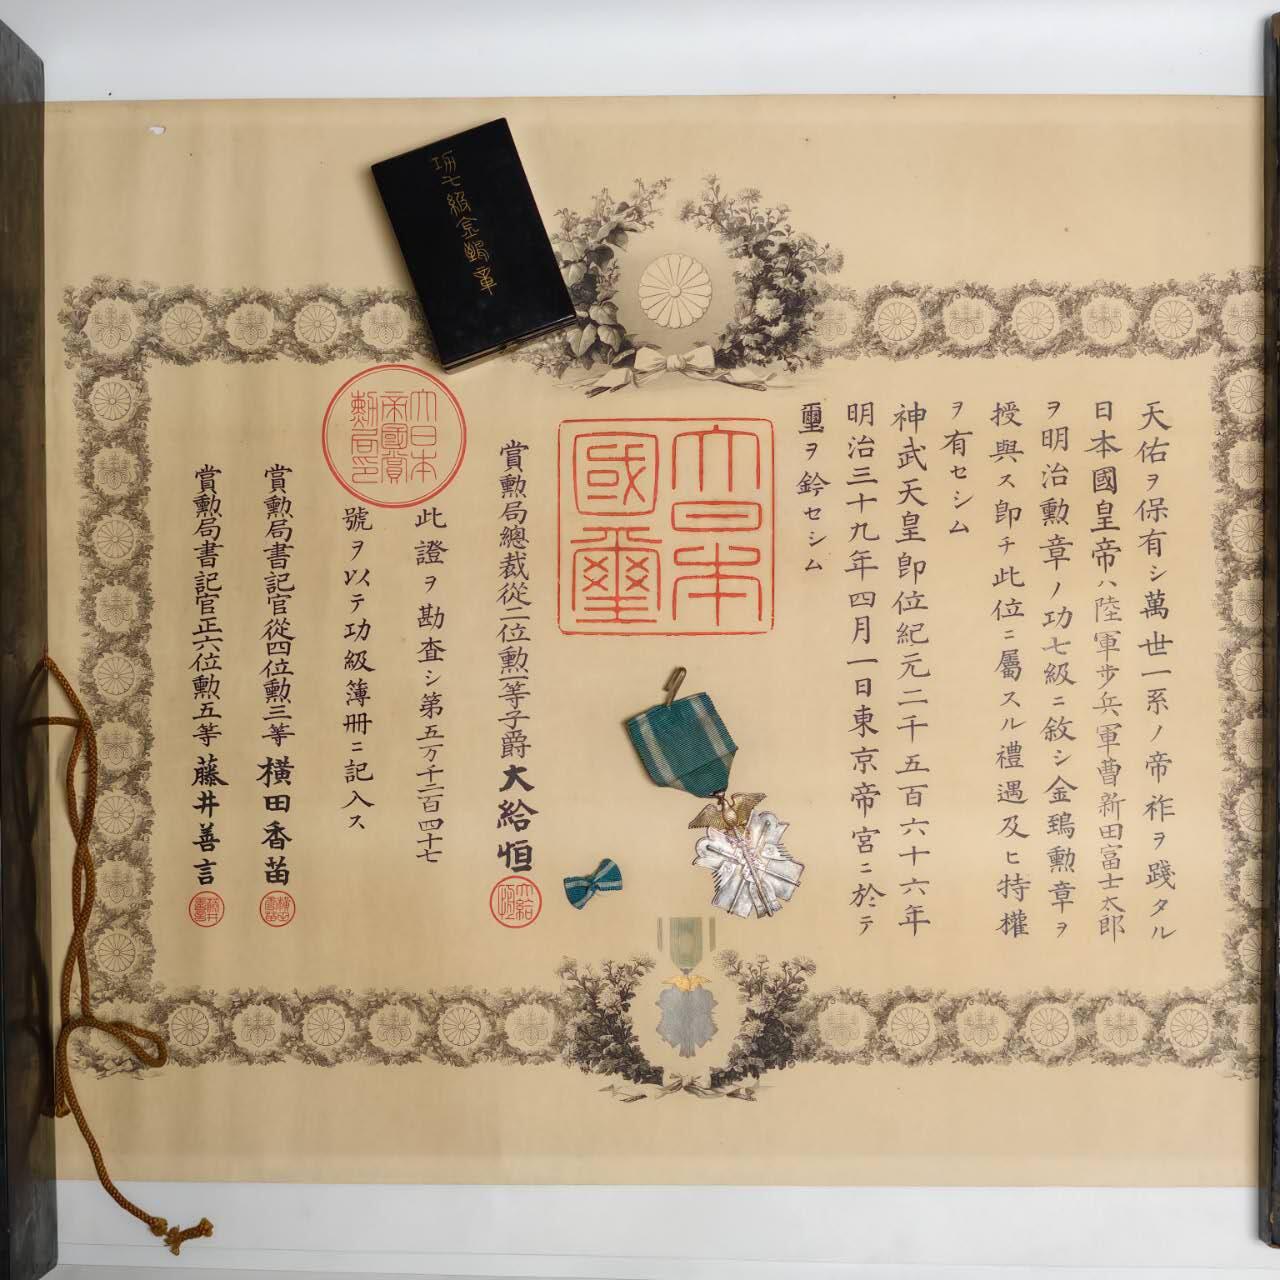 功七級金鵄章
天佑ヲ保有シ萬世一系ノ帝祚ヲ踐タル
日本國皇帝ハ陸軍步兵軍曹新田富士太郎
ヲ明治勲章ノ功七級ニ敘シ金鵄勲章ヲ
授與ス卽チ此位ニ屬スル禮遇及ヒ特權
ヲ有セシム
神武天皇卽位紀元二千五百六十六年
明治三十九年四月一日東京帝宮ニ於テ
璽ヲ鈐セシム
大日本國璽
賞勲局總裁從二位勲一等子爵大給恒
大給恒
此證ヲ勘査シ第五万千二百四十七
號ヲ以テ功級簿冊ニ記入ス
大日本帝國賞勲局印
賞勲局書記官從四位勲三等橫田香苗
賞勲局書記官正六位勲五等藤井善言